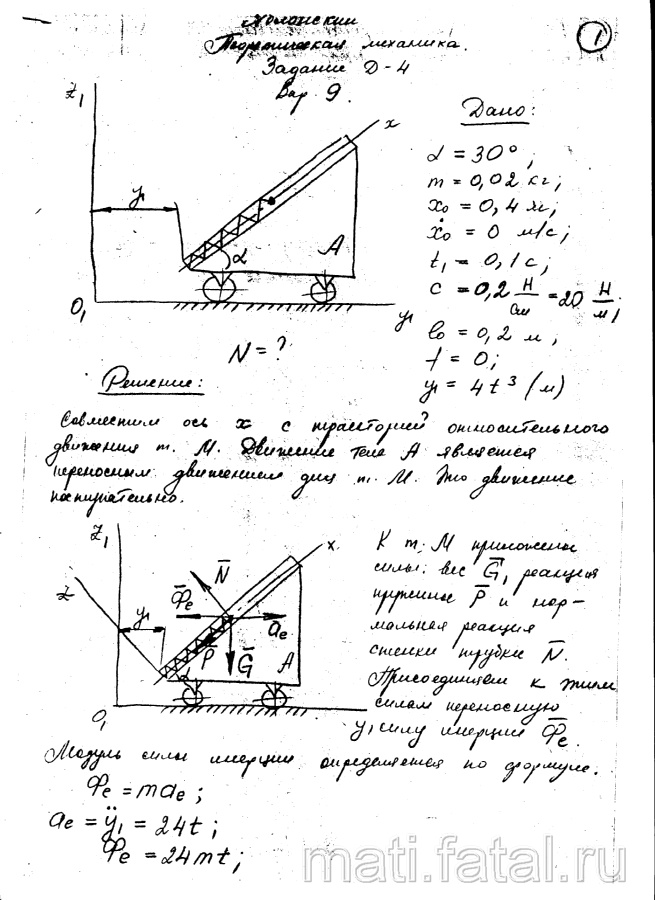 Яблонский
Теоретическая механика.
Задание Д-4
Вар. 9.
1
Дано:
α = 30°;
m = 0,02 кг;
x₀ = 0,4 м;
ẋ₀ = 0 м/с;
t₁ = 0,1 с;
c = 0,2 Н/см = 20 Н/м;
l₀ = 0,2 м;
f = 0;
y₁ = 4t³ (м)
z₁
x
y₁
α
A
O₁
y₁
N = ?
Решение:
Совместим ось x с траекторией относительного
движения т. М. Движение тела А является
переносным движением для т. М. Это движение
поступательно.
z₁
x
z
N̄
Φ̄e
y₁
ae
P̄
Ḡ
α
A
O₁
y₁
К т. М приложены
силы: вес Ḡ, реакция
пружины P̄ и нор-
мальная реакция
стенки трубки N̄.
Присоединяем к этим
силам переносную
силу инерции Φ̄e.
Модуль силы инерции определяется по формуле.
Φe = mae;
ae = ÿ₁ = 24t;
Φe = 24mt;
mati.fatal.ru